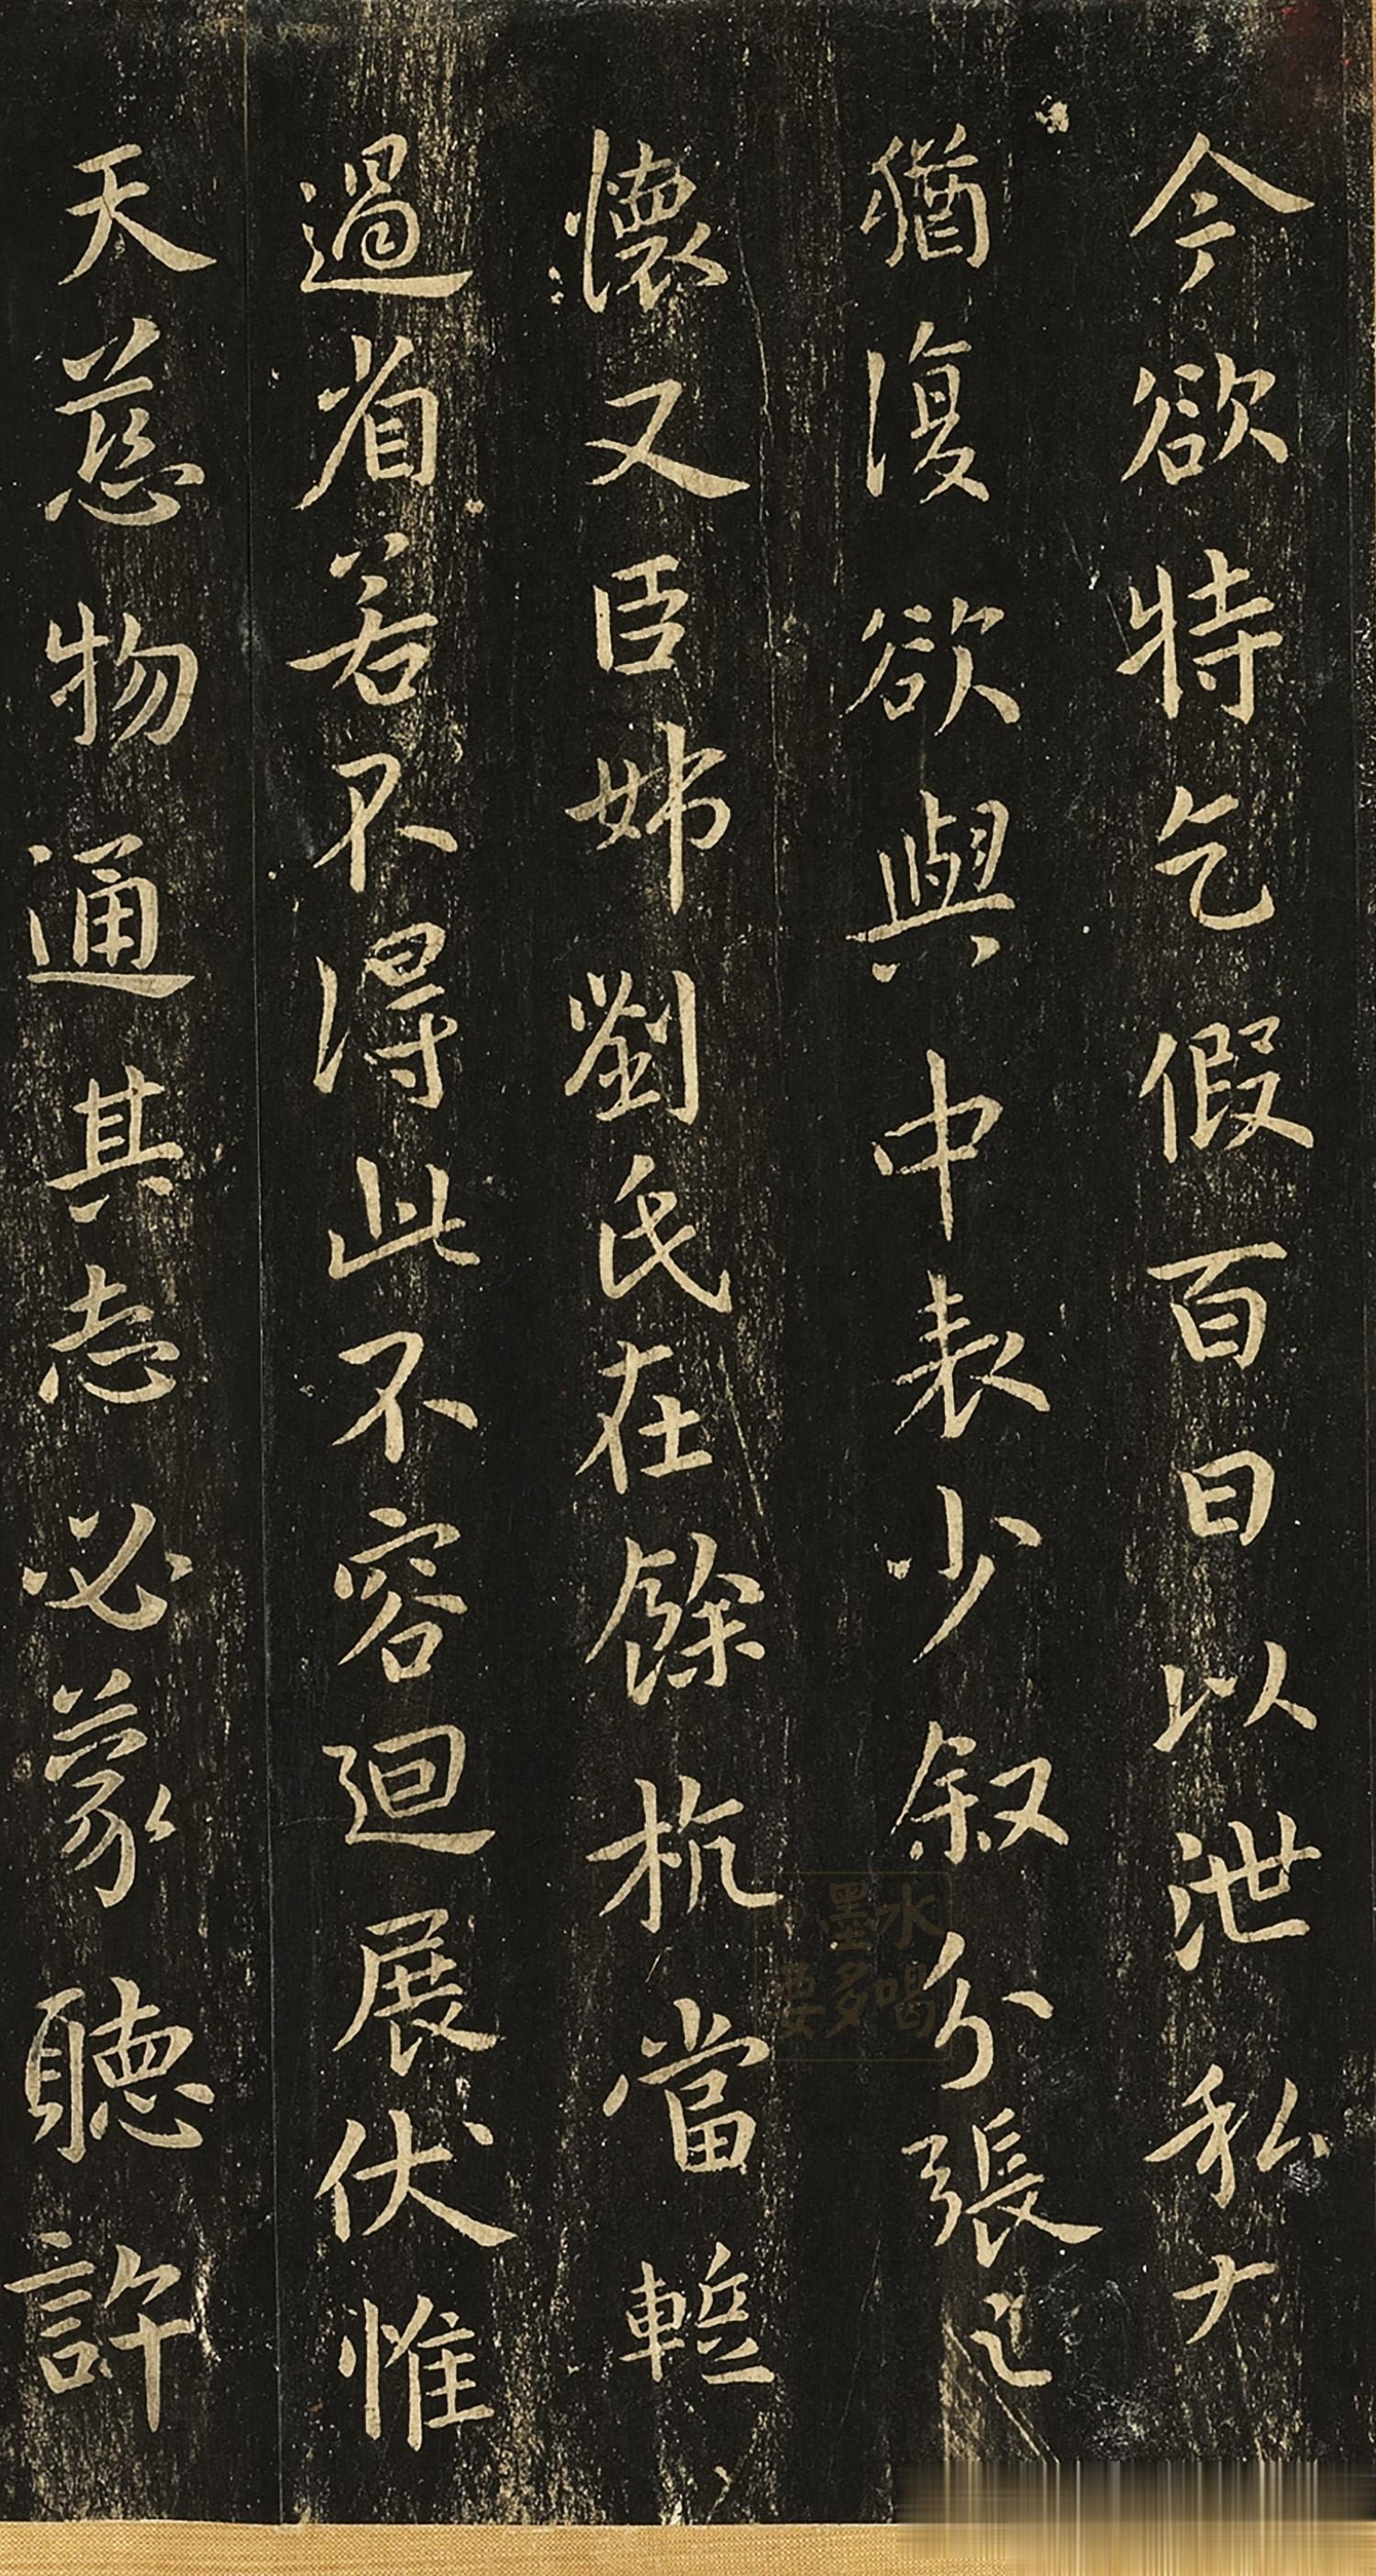 今欲特乞假百日以泄私少
猶復欲與中表少叙分張之
懷又臣姊劉氏在餘杭當蹔
過省若不得此不容迴展伏惟
天慈物通其志必蒙聽許
水墨
喝多要